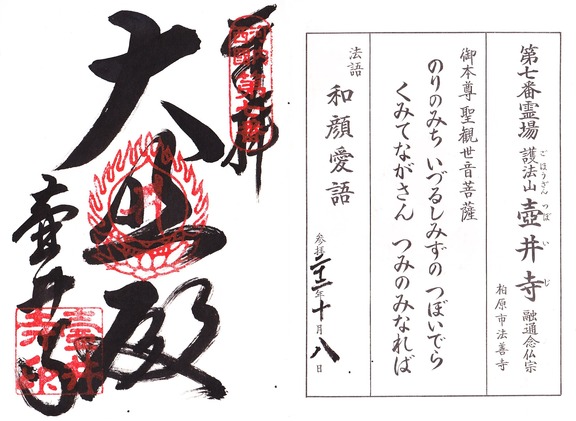 第七番霊場 護法山 壺井寺 融通念仏宗
ごほうざん つぼいじ
柏原市法善寺
御本尊 聖觀世音菩薩
のりのみち いづるしみずの つぼいでら
くみてながさん つみのみなれば
法語 和顔愛語
参拝二十二年十月八日
奉拝
大悲殿
壺井寺